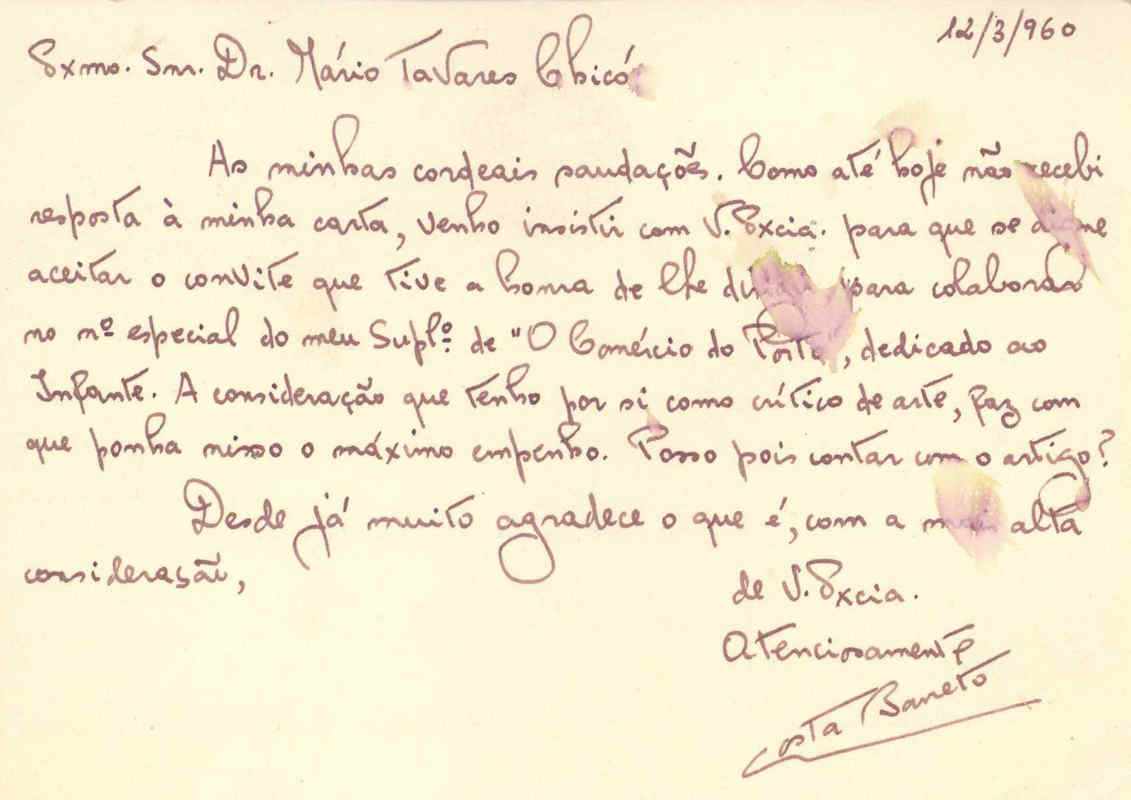 12/3/960
Exmo. Snr. Dr. Mário Tavares Chicó
As minhas cordeais saudações. Como até hoje não recebi
resposta à minha carta, venho insistir com V. Excia. para que se digne
aceitar o convite que tive a honra de lhe para colaborar
no nº especial do meu Suplº. de "O Comércio do Porto", dedicado ao
Infante. A consideração que tenho por si como crítico de arte, faz com
que ponha nisso o máximo empenho. Posso pois contar com o artigo?
Desde já muito agradece o que é, com a mais alta
consideração,
de V. Excia.
Atenciosamente
Costa Barreto